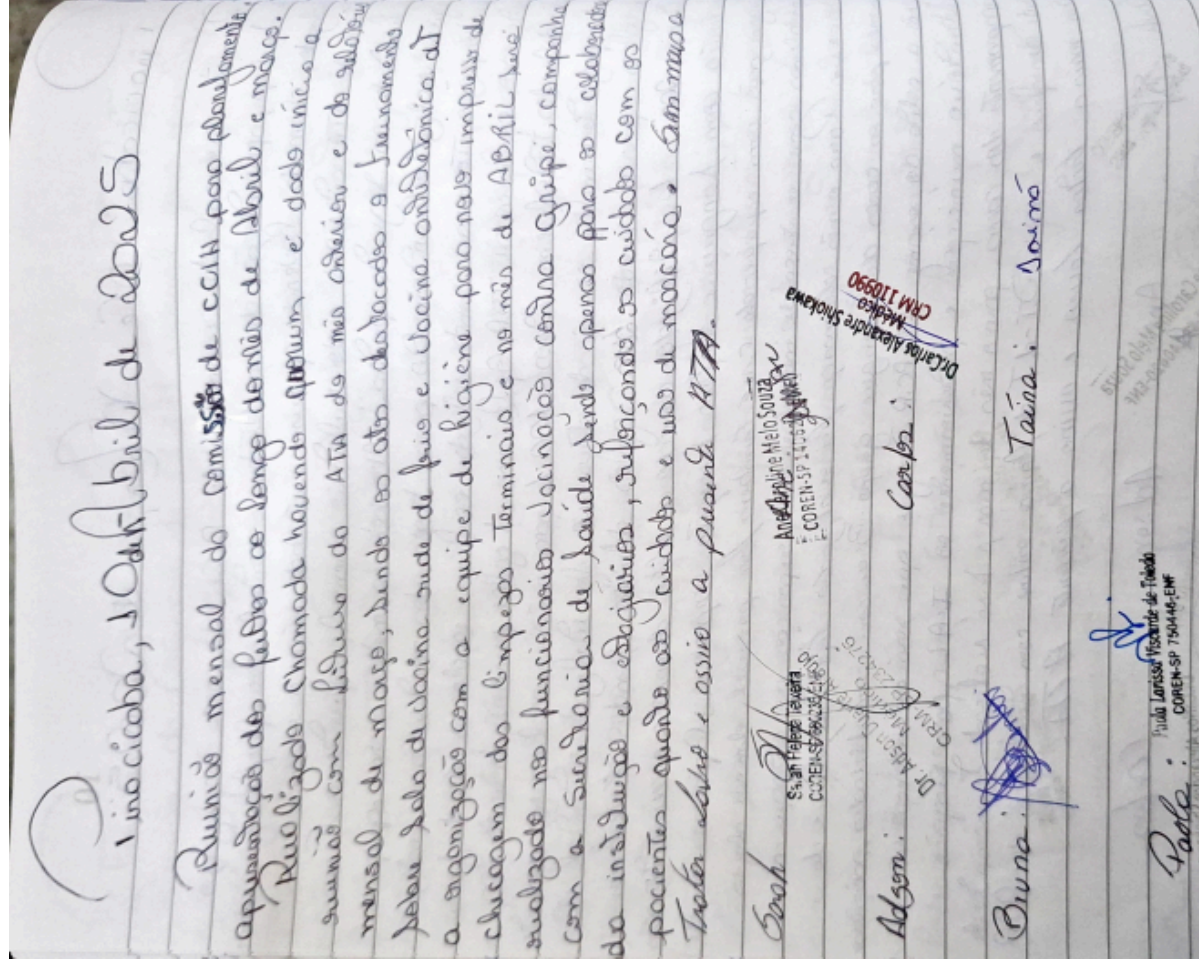 Piracicaba, 10 de Abril de 2025
Reunião mensal da comissão de CCIH, para planejamento,
apresentação dos feitos ao longo do mês de Abril e março.
Realizado chamada havendo quorum e dado início a
reunião com leitura da ATA do mês anterior e do relatório
mensal de março, sendo os atos destacados o treinamento
sobre sala de vacina rede de frio e vacina antitetânica dT
a organização com a equipe de higiene para novo impresso de
checagem das limpezas Terminais e no mês de ABRIL será
realizado nos funcionarios vacinação contra gripe, campanha
com a Secretaria de Saúde sendo apenas para os colaboradores
da instituição e estagiários, reforçando os cuidados com os
pacientes quanto aos cuidados e uso de mascára.
lavro e assino a presente ATA.
Sarah
Sarah Teixeira
Ane Caroline Melo Souza
COREN-SP
Adson:
Dr. Adson
CRM 234276
Carlos:
Dr. Carlos Alexandre Shiokawa
Médico
CRM 110990
Bruna:
Taina:
Paola:
Paola Larissa Visconde de Toledo
COREN-SP 750446-ENF